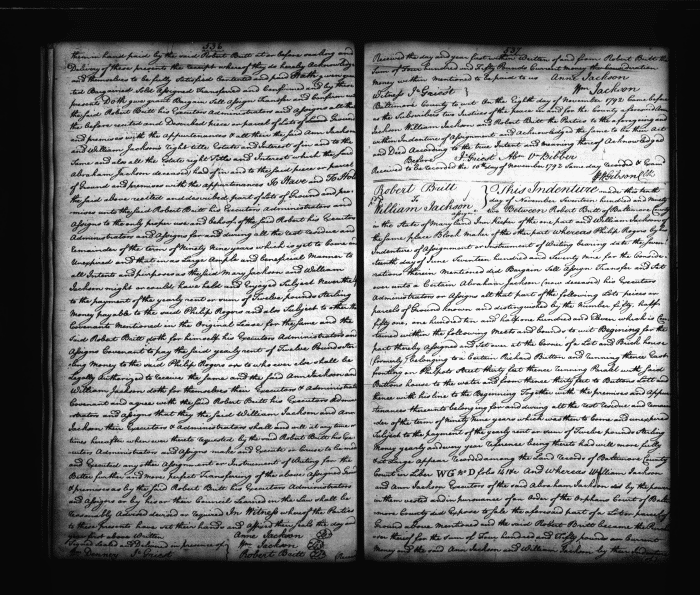 336
them in hand paid by the said Robert Britt at or before sealing and
Delivery of these presents the receipt whereof they do hereby Acknowledge
and themselves to be fully satisfied contented and paid Hath given gran
ted Bargained Sold Assigned Transfered and Confirmed and by these
presents Doth give grant Bargain Sell Assign Transfer and Confirm
the said Robert Britt his Executors Administrators and Assigns all that
the before recited and Described piece or parcel of Lots of Land Ground
and premises with the appurtenances & all there the said Ann Jackson
and William Jackson's right title Estate and Interest of in and to the
Same and also all the Estate right Title and Interest which the said
Abraham Jackson deceased had of in and to the said piece or parcel
of Ground and premises with the appurtenances To Have and To Hold
the said above recited and described part of Lots of Ground and pre
mises unto the said Robert Britt his Executors Administrators and
Assigns to the only proper use and behoof of the said Robert his Executors
Administrators and Assigns for and during all the rest residue and
remainder of the term of Ninety Nine years which is yet to come and
Unexpired and that in as Large Ample and beneficial Manner to
all Intents and purposes as the said Mary Jackson and William
Jackson might or could have held and Enjoyed Subject Nevertheless
to the payment of the yearly rent or sum of Twelve pounds Sterling
Money payable to the said Philip Rogers and also Subject to other the
Covenants Mentioned in the Original Lease for the same and the
said Robert Britt doth for himself his Executors Administrators and
Assigns Covenant to pay the said yearly rent of Twelve Pounds ster
ling Money to the said Philip Rogers or to who ever else shall be
Legally Authorized to receive the same and the said Ann Jackson and
William Jackson doth for them selves their Executors & Administrators
Covenant and agree with the said Robert Britt his Executors Admini
strators and Assigns that they the said William Jackson and Ann
Jackson their Executors & Administrators shall and will at any time or
times hereafter when ever thereto requested by the said Robert Britt his Ex
ecutors Administrators and Assigns make and Execute or Cause to be made
and Executed any other Assignment or Instrument of Writing for the
Better further and more perfect Transfering of the Lease Assigned Land
& premises as by the said Robert Britt his Executors Administrators
and Assigns or by his or their Council Learned in the Law shall be
reasonably Advised devised or required In Witness whereof the Parties
to these presents have set their hands and affixed their seals the day and
year first above Written
Signed sealed and Delivered in presence of
Anne Jackson
Wm Jackson
Robert Britt
337
Received the day and year first within Written of and from Robert Britt the
Sum of Four hundred and Fifty Pounds Current Money the Consideration
Money within Mentioned to be paid to us Anne Jackson
Witness Js Gerist Wm Jackson
Baltimore County to wit On the Eighth day of November 1792 Came before
us the Subscribers two Justices of the peace in and for the County aforesaid Ann
Jackson William Jackson and Robert Britt the Parties to the aforegoing and
within Indenture of Assignment and Acknowledged the same to be their Act
and Deed According to the true Intent and meaning thereof Acknowledged
Before
Received to be recorded the 10th day of November 1792 Same day recorded & Exand
Wm Gibson Clk
Robert Britt
To
William Jackson
This Indenture made this tenth
day of November Seventeen hundred and Ninety
two Between Robert Britt of Baltimore County
in the State of Maryland Inn Keeper of the one part and William Jackson of
the same place Block Maker of the other part whereas Philip Rogers by his
Indenture of Assignment or Instrument of Writing bearing date the
day of June Seventeen hundred and Seventy nine for the Conside
ration therein mentioned did Bargain Sell Assign Transfer and Set
over unto a Certain Abraham Jackson (now deceased) his Executors
Administrators or Assigns all that part of the following Lots piece or
parcels of Ground known and distinguished by the Number fifty, half
fifty one, one hundred ten and half one hundred and Eleven which is Con
tained within the following Meets and bounds to wit Beginning for the
part thereby Assigned and Set over at the Corner of a Lot and Brick house
(formerly) belonging to a Certain Richard Button and running thence East
fronting on Philpots Street thirty feet thence running Parallel with said
Buttons house to the water and from thence thirty feet to Buttons Lott and
thence with his line to the Beginning Together with the premises and Appur
tenances thereunto belonging for and during all the rest residue and remain
der of the term of Ninety Nine years which was then to come and unexpired
Subject to the payment of the yearly rent or sum of Twelve pounds Sterling
Money yearly and every year reference being thereto had will more fully
& at Large Appear recorded among the Land records of Baltimore County
Court in Liber WG No D folio 414 &c And whereas William Jackson
and Ann Jackson Executors of the said Abraham Jackson did by the power
in them vested and in pursuance of an Order of the Orphans Court of Balti
more County did Expose to sale the aforesaid part of a Lot or parcel of
Ground above Mentioned and the said Robert Britt became the Purcha
ser thereof for the sum of Four hundred and Fifty pounds Current
Money and the said Ann Jackson and William Jackson by their Indenture